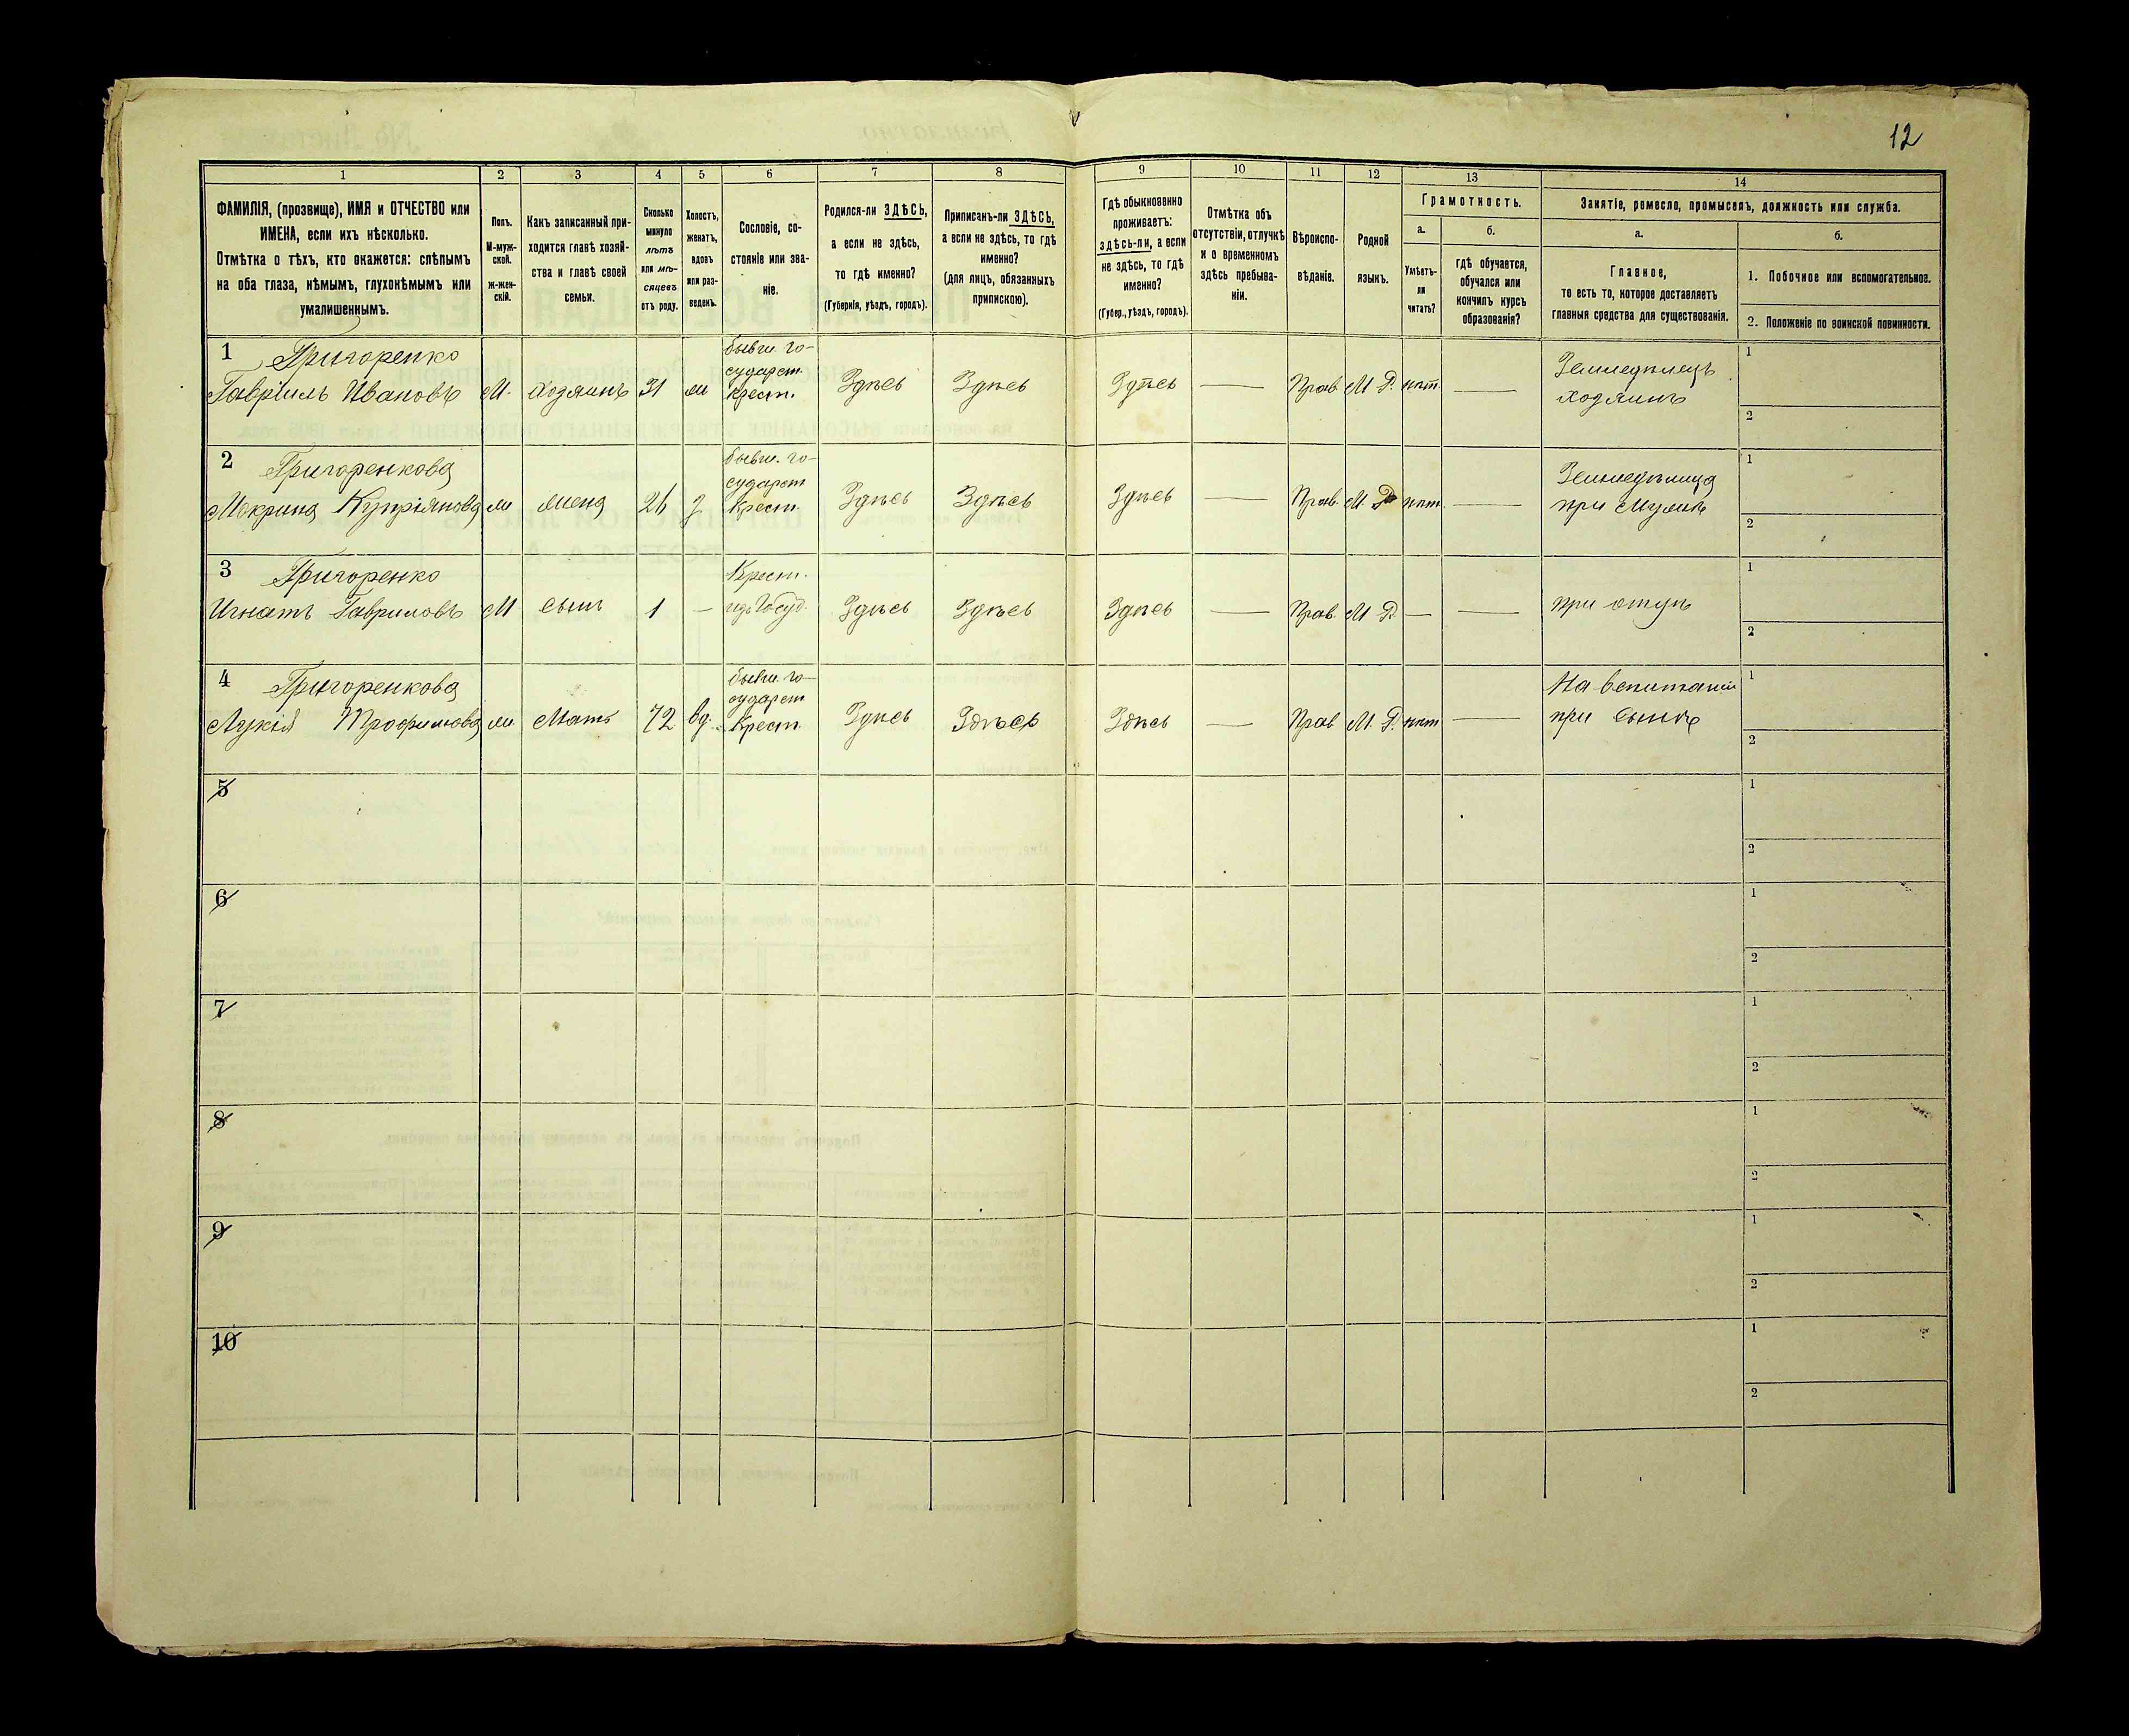 12
1 2 3 4 5 6 7 8 9 10 11 12 13 14
ФАМИЛІЯ, (прозвище), ИМЯ и ОТЧЕСТВО или
ИМЕНА, если ихъ нѣсколько.
Отмѣтка о тѣхъ, кто окажется: слѣпымъ
на оба глаза, нѣмымъ, глухонѣмымъ или
умалишеннымъ.
Полъ.
М-муж-
ской.
ж-жен-
скій.
Какъ записанный при-
ходится главѣ хозяй-
ства и главѣ своей
семьи.
Сколько
минуло
лѣтъ
или мѣ-
сяцевъ
отъ роду.
Холостъ,
женатъ,
вдовъ
или раз-
веденъ.
Сословіе, со-
стояніе или зва-
ніе.
Родился-ли ЗДѢСЬ,
а если не здѣсь,
то гдѣ именно?
(Губернія, уѣздъ, городъ).
Приписанъ-ли ЗДѢСЬ,
а если не здѣсь, то гдѣ
именно?
(для лицъ, обязанныхъ
припискою).
Гдѣ обыкновенно
проживаетъ:
здѣсь-ли, а если
не здѣсь, то гдѣ
именно?
(Губер., уѣздъ, городъ).
Отмѣтка объ
отсутствіи, отлучкѣ
и о временномъ
здѣсь пребыва-
ніи.
Вѣроиспо-
вѣданіе.
Родной
языкъ.
Грамотность.
а.
Умѣетъ-
ли
читать?
б.
гдѣ обучается,
обучался или
кончилъ курсъ
образованія?
Занятіе, ремесло, промыселъ, должность или служба.
а.
Главное,
то есть то, которое доставляетъ
главныя средства для существованія.
б.
1. Побочное или вспомогательное.
2. Положеніе по воинской повинности.
1 Григоренко
Гавріилъ Ивановъ М. хозяинъ 31 ж бывш. го-
сударст.
крест. Здѣсь Здѣсь Здѣсь — Прав. М. Р. нѣт. —
Земледѣлецъ
хозяинъ
1
2
2 Григоренкова
Макрина Купріянова ж жена 26 з бывш. го-
сударст
Крест. Здѣсь Здѣсь Здѣсь — Прав. М. Р. нѣт. —
Земледѣлица
при мужѣ
1
2
3 Григоренко
Игнатъ Гавриловъ М сынъ 1 — Крест.
изъ Госуд. Здѣсь Здѣсь Здѣсь — Прав. М. Р. — —
при отцѣ
1
2
4 Григоренкова
Лукія Трофимова ж. Мать 72 вд. бывш. го-
сударст
Крест. Здѣсь Здѣсь Здѣсь — Прав М. Р. нѣт —
На
при сынѣ
1
2
5
1
2
6
1
2
7
1
2
8
1
2
9
1
2
10
1
2